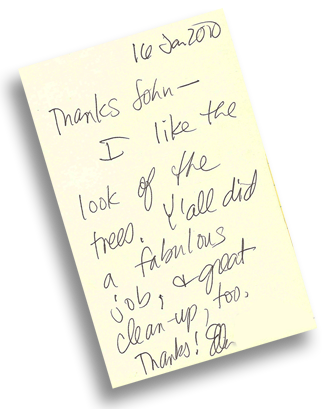 16 Jan 2010
Thanks John—
I like the
look of the
trees. Y'all did
a fabulous
job, & great
clean-up, too.
Thanks!